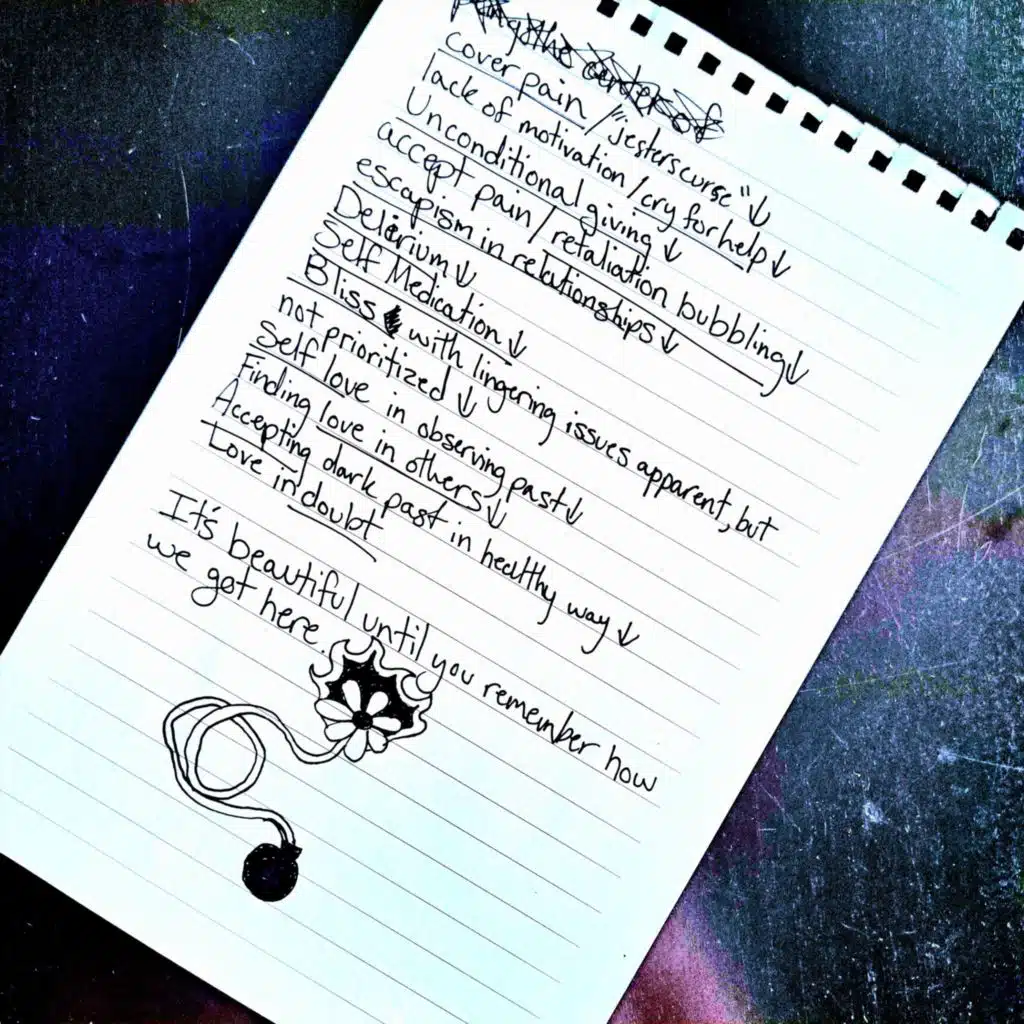 cover pain / "jesters curse" ↓
lack of motivation / cry for help ↓
Unconditional giving ↓
accept pain / retaliation bubbling ↓
escapism in relationships ↓
Delerium ↓
Self Medication ↓
Bliss with lingering issues apparent, but
not prioritized ↓
Self love in observing past ↓
Finding love in others ↓
Accepting dark past in healthy way ↓
Love in doubt
It's beautiful until you remember how
we got here.